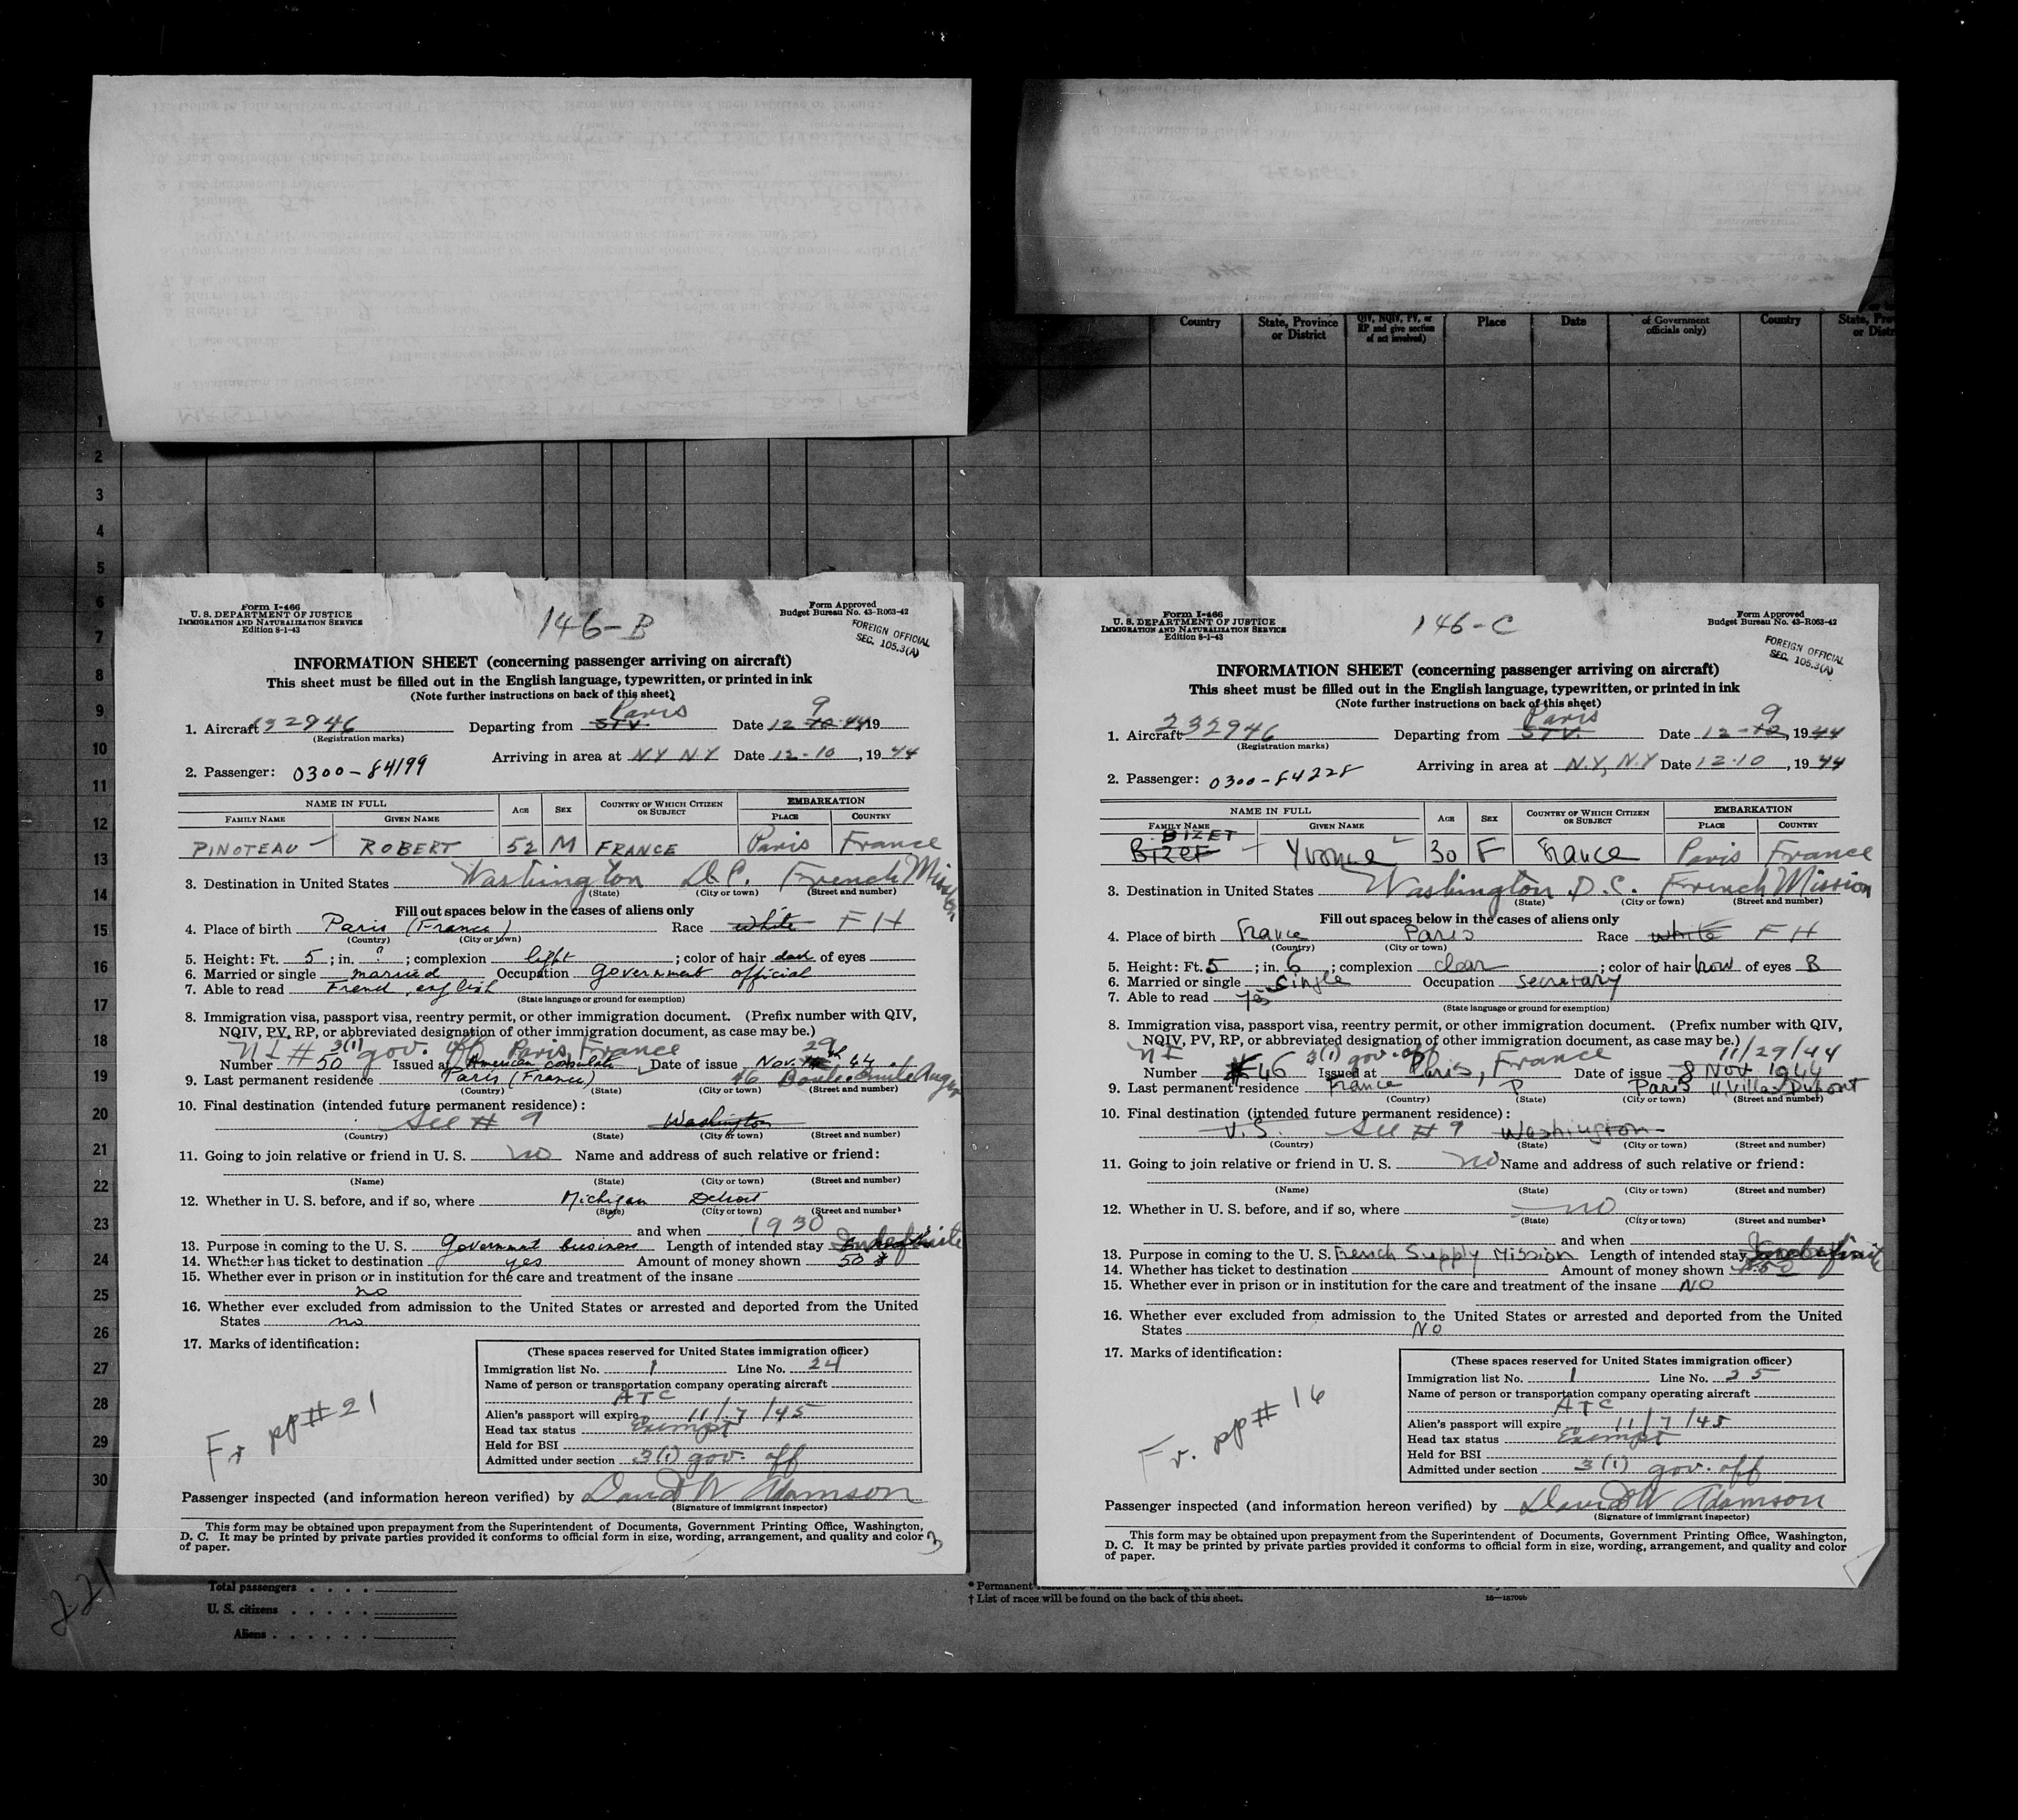 Country State, Province or District QIV, NQIV, PV, or RP and give section of act involved) Place Date of Government officials only) Country
1
2
3
4
5
6
7
8
9
10
11
12
13
14
15
16
17
18
19
20
21
22
23
24
25
26
27
28
29
30
Form I-466
U. S. DEPARTMENT OF JUSTICE
IMMIGRATION AND NATURALIZATION SERVICE
Edition 8-1-43
146-B
Form Approved
Budget Bureau No. 43-R063-42
FOREIGN OFFICIAL
SEC. 105.3(A)
INFORMATION SHEET (concerning passenger arriving on aircraft)
This sheet must be filled out in the English language, typewritten, or printed in ink
(Note further instructions on back of this sheet)
1. Aircraft 232946 Departing from STV. Paris Date 12-10-44 9 19
(Registration marks)
Arriving in area at NY NY Date 12-10, 1944
2. Passenger: 0300-84199
NAME IN FULL AGE SEX COUNTRY OF WHICH CITIZEN OR SUBJECT EMBARKATION
FAMILY NAME GIVEN NAME PLACE COUNTRY
PINOTEAU ROBERT 52 M FRANCE Paris France
3. Destination in United States Washington D.C. French Mission
(State) (City or town) (Street and number)
Fill out spaces below in the cases of aliens only
4. Place of birth Paris (France) Race white FH
(Country) (City or town)
5. Height: Ft. 5; in. ; complexion light; color of hair dark of eyes
6. Married or single married Occupation government official
7. Able to read French, english
(State language or ground for exemption)
8. Immigration visa, passport visa, reentry permit, or other immigration document. (Prefix number with QIV,
NQIV, PV, RP, or abbreviated designation of other immigration document, as case may be.)
NI # 3(1) gov. off Paris, France 29
Number 50 Issued at American consulate Date of issue Nov. 44
9. Last permanent residence Paris (France) 46 Boul. Emile Augier
(Country) (State) (City or town) (Street and number)
10. Final destination (intended future permanent residence):
See # 9 Washington
(Country) (State) (City or town) (Street and number)
11. Going to join relative or friend in U. S. no Name and address of such relative or friend:
(Name) (State) (City or town) (Street and number)
12. Whether in U. S. before, and if so, where Michigan Detroit
(State) (City or town) (Street and number)
and when 1930
13. Purpose in coming to the U. S. Government business Length of intended stay Indefinite
14. Whether has ticket to destination yes Amount of money shown 50 $
15. Whether ever in prison or in institution for the care and treatment of the insane
no
16. Whether ever excluded from admission to the United States or arrested and deported from the United
States no
17. Marks of identification:
Fr pp# 21
(These spaces reserved for United States immigration officer)
Immigration list No. 1 Line No. 24
Name of person or transportation company operating aircraft
ATC
Alien's passport will expire 11/7/45
Head tax status Exempt
Held for BSI
Admitted under section 3(1) gov. off
Passenger inspected (and information hereon verified) by David W Adamson
(Signature of immigrant inspector)
This form may be obtained upon prepayment from the Superintendent of Documents, Government Printing Office, Washington,
D. C. It may be printed by private parties provided it conforms to official form in size, wording, arrangement, and quality and color
of paper.
3
221
Total passengers
U. S. citizens
Aliens
Form I-466
U. S. DEPARTMENT OF JUSTICE
IMMIGRATION AND NATURALIZATION SERVICE
Edition 8-1-43
146-C
Form Approved
Budget Bureau No. 43-R063-42
FOREIGN OFFICIAL
SEC. 105.3(A)
INFORMATION SHEET (concerning passenger arriving on aircraft)
This sheet must be filled out in the English language, typewritten, or printed in ink
(Note further instructions on back of this sheet)
1. Aircraft 232946 Departing from STV. Paris Date 12-10 9, 1944
(Registration marks)
Arriving in area at N.Y, N.Y Date 12-10, 1944
2. Passenger: 0300-84228
NAME IN FULL AGE SEX COUNTRY OF WHICH CITIZEN OR SUBJECT EMBARKATION
FAMILY NAME GIVEN NAME PLACE COUNTRY
BIZET
Bizet Yvonne 30 F France Paris France
3. Destination in United States Washington D.C. French Mission
(State) (City or town) (Street and number)
Fill out spaces below in the cases of aliens only
4. Place of birth France Paris Race white FH
(Country) (City or town)
5. Height: Ft. 5; in. 6; complexion clear; color of hair brow of eyes B
6. Married or single single Occupation secretary
7. Able to read yes
(State language or ground for exemption)
8. Immigration visa, passport visa, reentry permit, or other immigration document. (Prefix number with QIV,
NQIV, PV, RP, or abbreviated designation of other immigration document, as case may be.)
NI 3(1) gov. off 11/29/44
Number # 46 Issued at Paris, France Date of issue 8 Nov 1944
9. Last permanent residence France P Paris 11 Villa Dupont
(Country) (State) (City or town) (Street and number)
10. Final destination (intended future permanent residence):
U.S. See # 9 Washington
(Country) (State) (City or town) (Street and number)
11. Going to join relative or friend in U. S. no Name and address of such relative or friend:
(Name) (State) (City or town) (Street and number)
12. Whether in U. S. before, and if so, where no
(State) (City or town) (Street and number)
and when
13. Purpose in coming to the U. S. French Supply Mission Length of intended stay Indefinite
14. Whether has ticket to destination Amount of money shown
15. Whether ever in prison or in institution for the care and treatment of the insane NO
16. Whether ever excluded from admission to the United States or arrested and deported from the United
States NO
17. Marks of identification:
Fr. pp# 16
(These spaces reserved for United States immigration officer)
Immigration list No. 1 Line No. 25
Name of person or transportation company operating aircraft
ATC
Alien's passport will expire 11/7/45
Head tax status Exempt
Held for BSI
Admitted under section 3(1) gov. off
Passenger inspected (and information hereon verified) by David W Adamson
(Signature of immigrant inspector)
This form may be obtained upon prepayment from the Superintendent of Documents, Government Printing Office, Washington,
D. C. It may be printed by private parties provided it conforms to official form in size, wording, arrangement, and quality and color
of paper.
* Permanent
† List of races will be found on the back of this sheet.